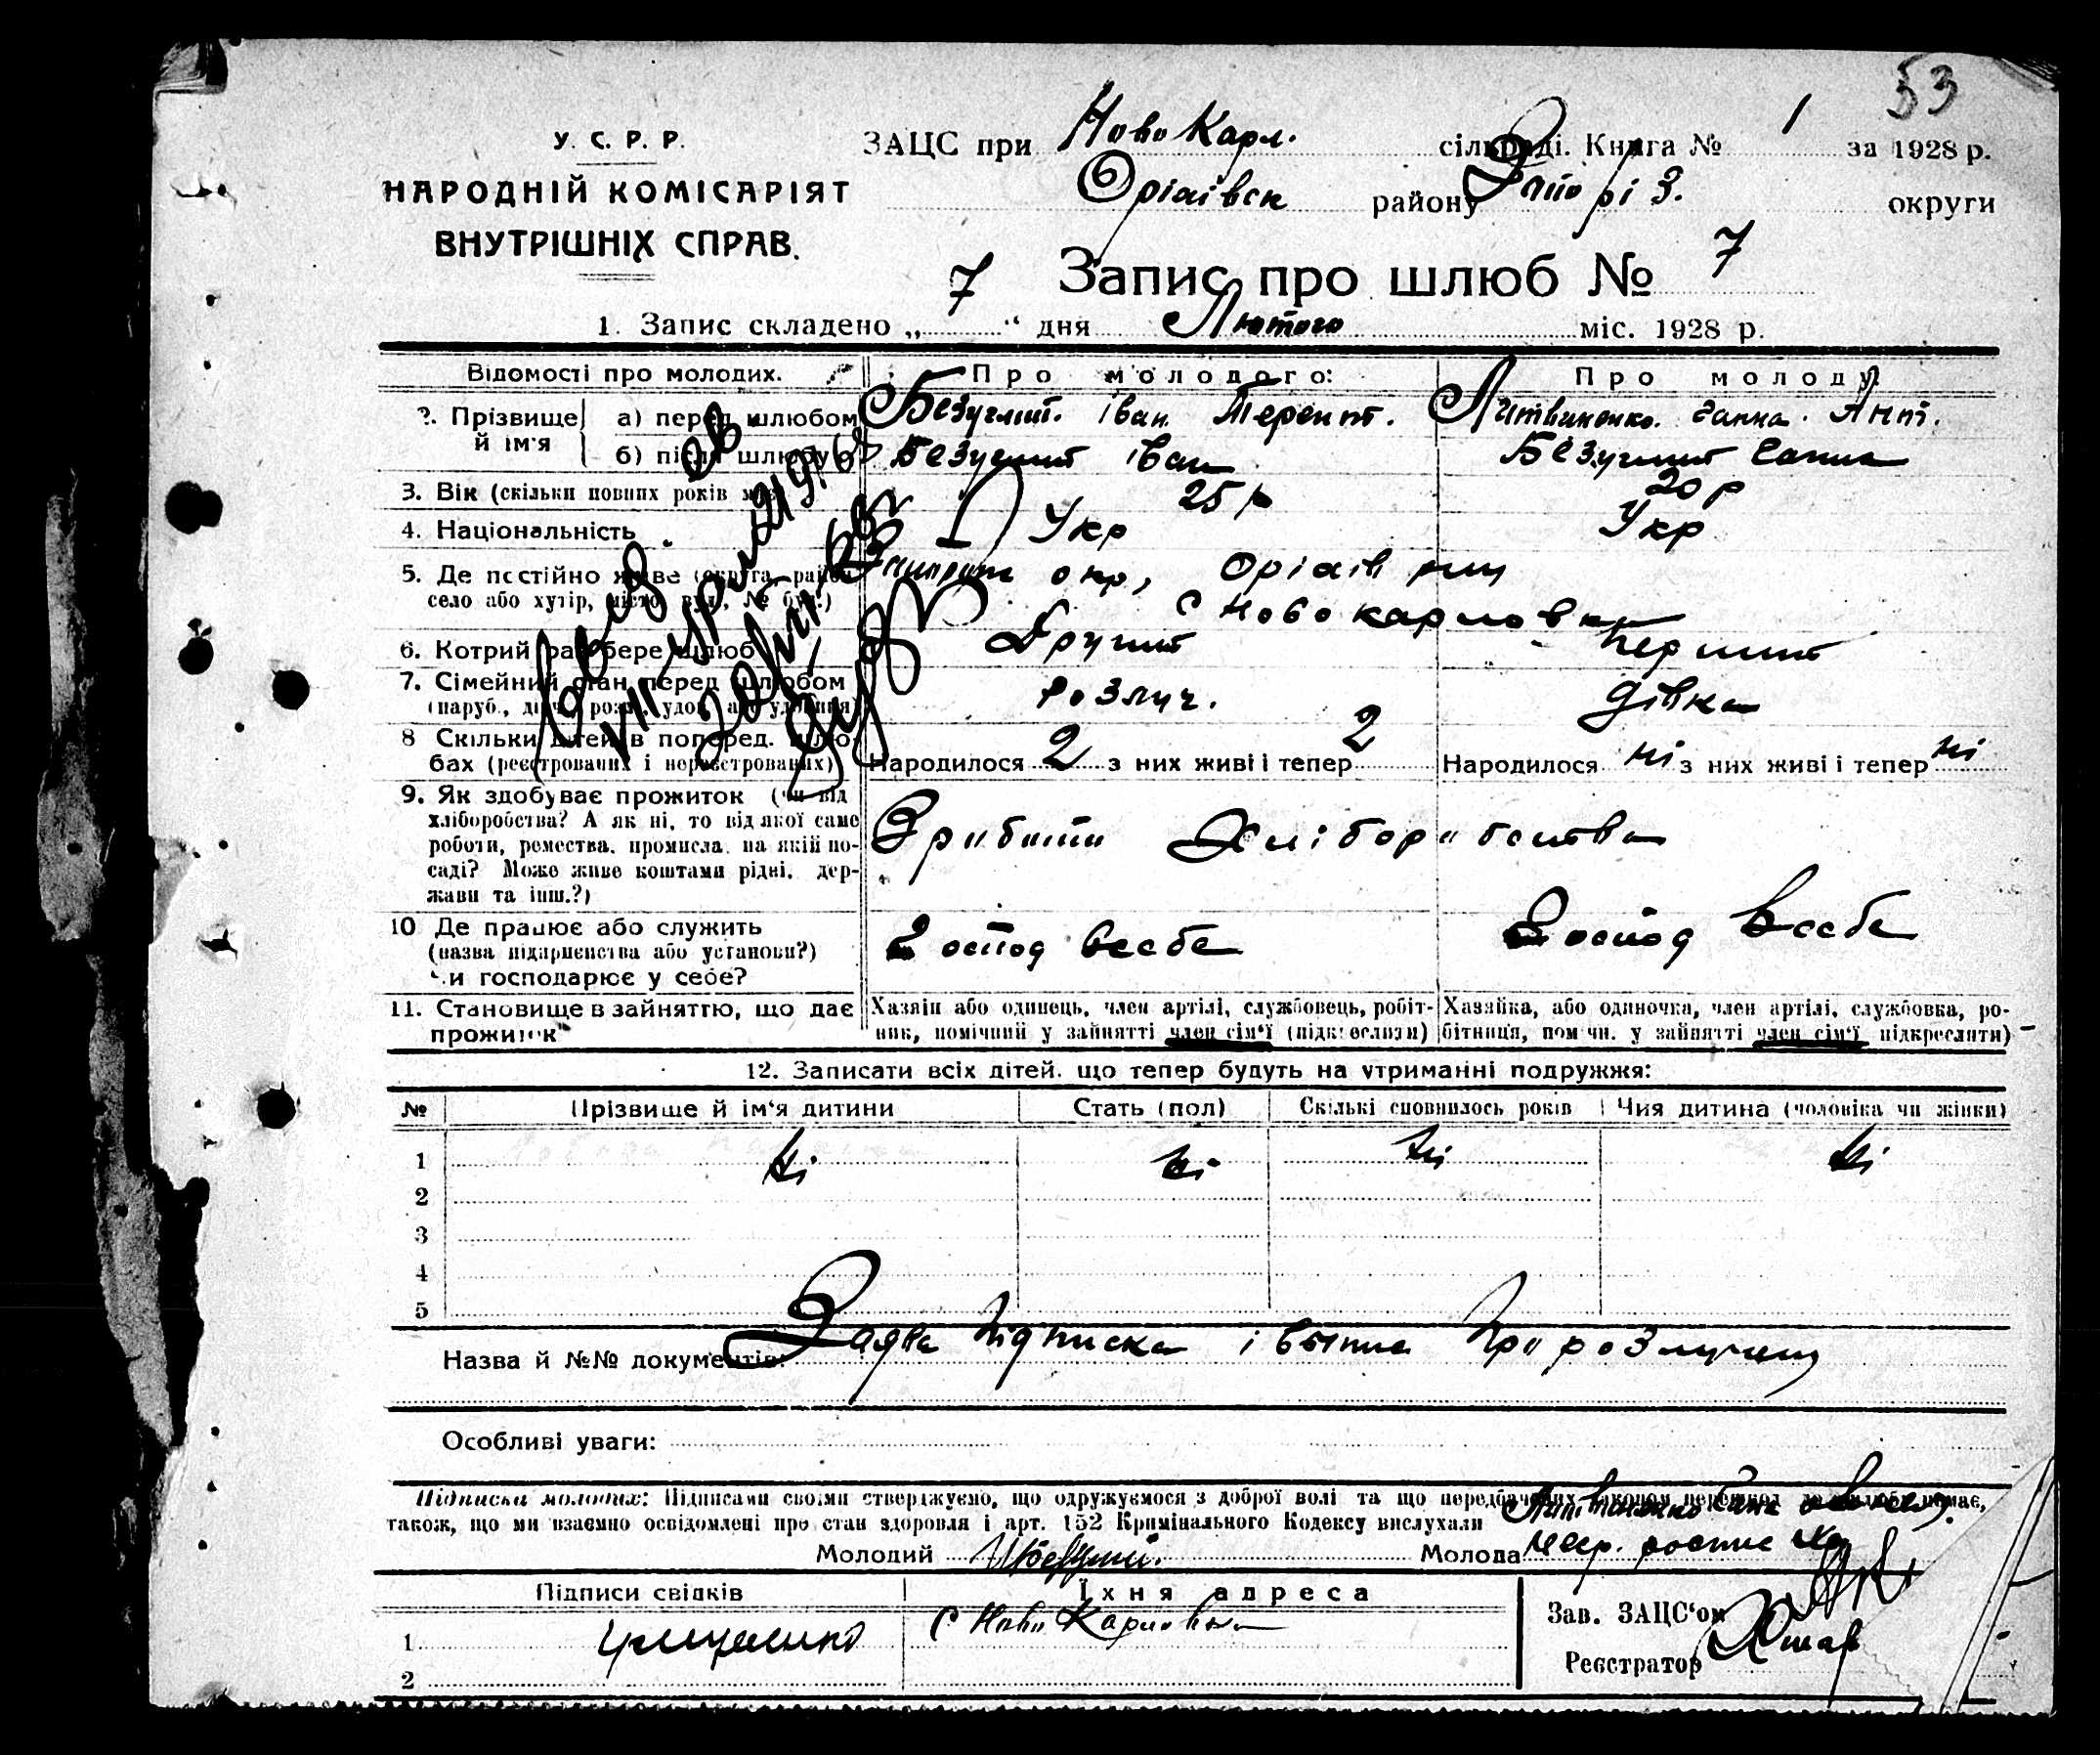 53
У. С. Р. Р.
НАРОДНІЙ КОМІСАРІЯТ
ВНУТРІШНІХ СПРАВ.
ЗАЦС при Ново Карл. сільраді. Книга № 1 за 1928 р.
Оріхівск району округи
Запис про шлюб № 7
1. Запис складено „ 7 “ дня Лютого міс. 1928 р.
Відомості про молодих. Про молодого: Про молоду:
2. Прізвище й ім'я а) перед шлюбом Безуглий. Іван Терент. Литвиненко. Ганна. Ант.
б) після шлюбу Безуглий Іван Безуглий Ганна
3. Вік (скільки повних років має) 25 р 20 р
4. Національність Укр Укр
5. Де постійно живе (округа, район, село або хутір, місто, вул., № буд.) окр, Оріхів
с Ново карловка
6. Котрий раз бере шлюб Другий Перший
7. Сімейний стан перед шлюбом розлуч. дівка
(паруб., дівч., розл., удов. або удовиця)
8 Скільки дітей в поперед. шлюбах (реєстрованих і нереєстрованих) Народилося 2 з них живі і тепер 2 Народилося ні з них живі і тепер ні
9. Як здобуває прожиток (чи від
хліборобства? А як ні, то від якої саме
роботи, ремества, промисла, на якій по-
саді? Може живе коштами рідні, дер-
жави та інш.?)
Хліборобства
10 Де працює або служить
(назва підприємства або установи?)
чи господарює у себе?
Господ всебе Господ всебе
11. Становище в зайняттю, що дає
прожиток"
Хазяїн або одинець, член артілі, службовець, робіт-
ник, помічний у зайнятті член сім'ї (підкреслити)
Хазяйка, або одиночка, член артілі, службовка, ро-
бітниця, помічн. у зайнятті член сім'ї підкреслити)
12. Записати всіх дітей, що тепер будуть на утриманні подружжя:
№ Прізвище й ім'я дитини Стать (пол) Скількі сповнилось років Чия дитина (чоловіка чи жінки)
1 ні ні ні ні
2
3
4
5
Назва й №№ документів: Заява Підписка і выпис про розлучен
Особливі уваги:
Підписки молодих: Підписами своїми стверджуємо, що одружуємося з доброї волі та що передбачених законом перешкод до шлюбу немає,
також, що ми взаємно освідомлені про стан здоровля і арт. 152 Кримінального Кодексу вислухали
Молодий Молода
Підписи свідків Їхня адреса
1 с Ново Карловка
2
Зав. ЗАЦС'ом
Реєстратор